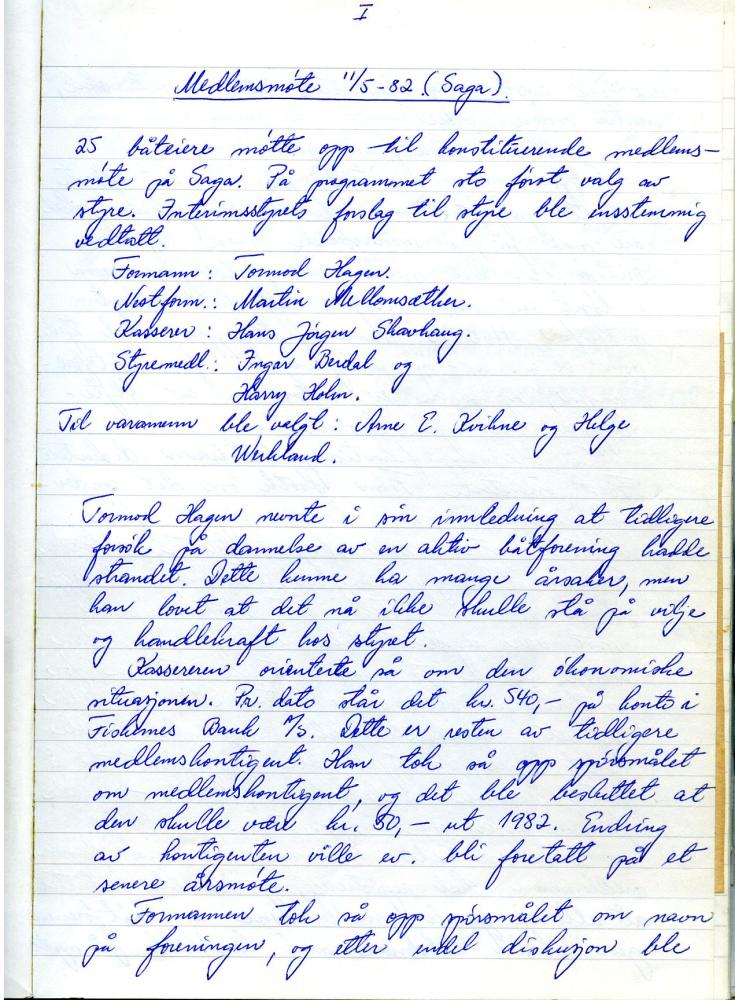 I
Medlemsmøte 11/5-82. (Saga).
25 båteiere møtte opp til konstituerende medlems-
møte på Saga. På programmet sto først valg av
styre. Interimsstyrets forslag til styre ble ensstemmig
vedtatt.
Formann : Tormod Hagen.
Nestform.: Martin Mellomsæther.
Kasserer : Hans Jørgen Skavhaug.
Styremedl.: Ingar Berdal og
Harry Holm.
Til varamenn ble valgt : Arne E. Kvikne og Helge
Werkland.
Tormod Hagen nevnte i sin innledning at tidligere
forsøk på dannelse av en aktiv båtforening hadde
strandet. Dette kunne ha mange årsaker, men
han lovet at det nå ikke skulle stå på vilje
og handlekraft hos styret.
Kassereren orienterte så om den økonomiske
situasjonen. Pr. dato står det kr. 540,- på konto i
Fiskernes Bank A/S. Dette er resten av tidligere
medlemskontigent. Han tok så opp spørsmålet
om medlemskontigent, og det ble besluttet at
den skulle være kr. 50,- ut 1982. Endring
av kontigenten ville ev. bli foretatt på et
senere årsmøte.
Formannen tok så opp spørsmålet om navn
på foreningen, og etter endel diskusjon ble